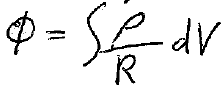 ϕ = ∫ρ/R dV